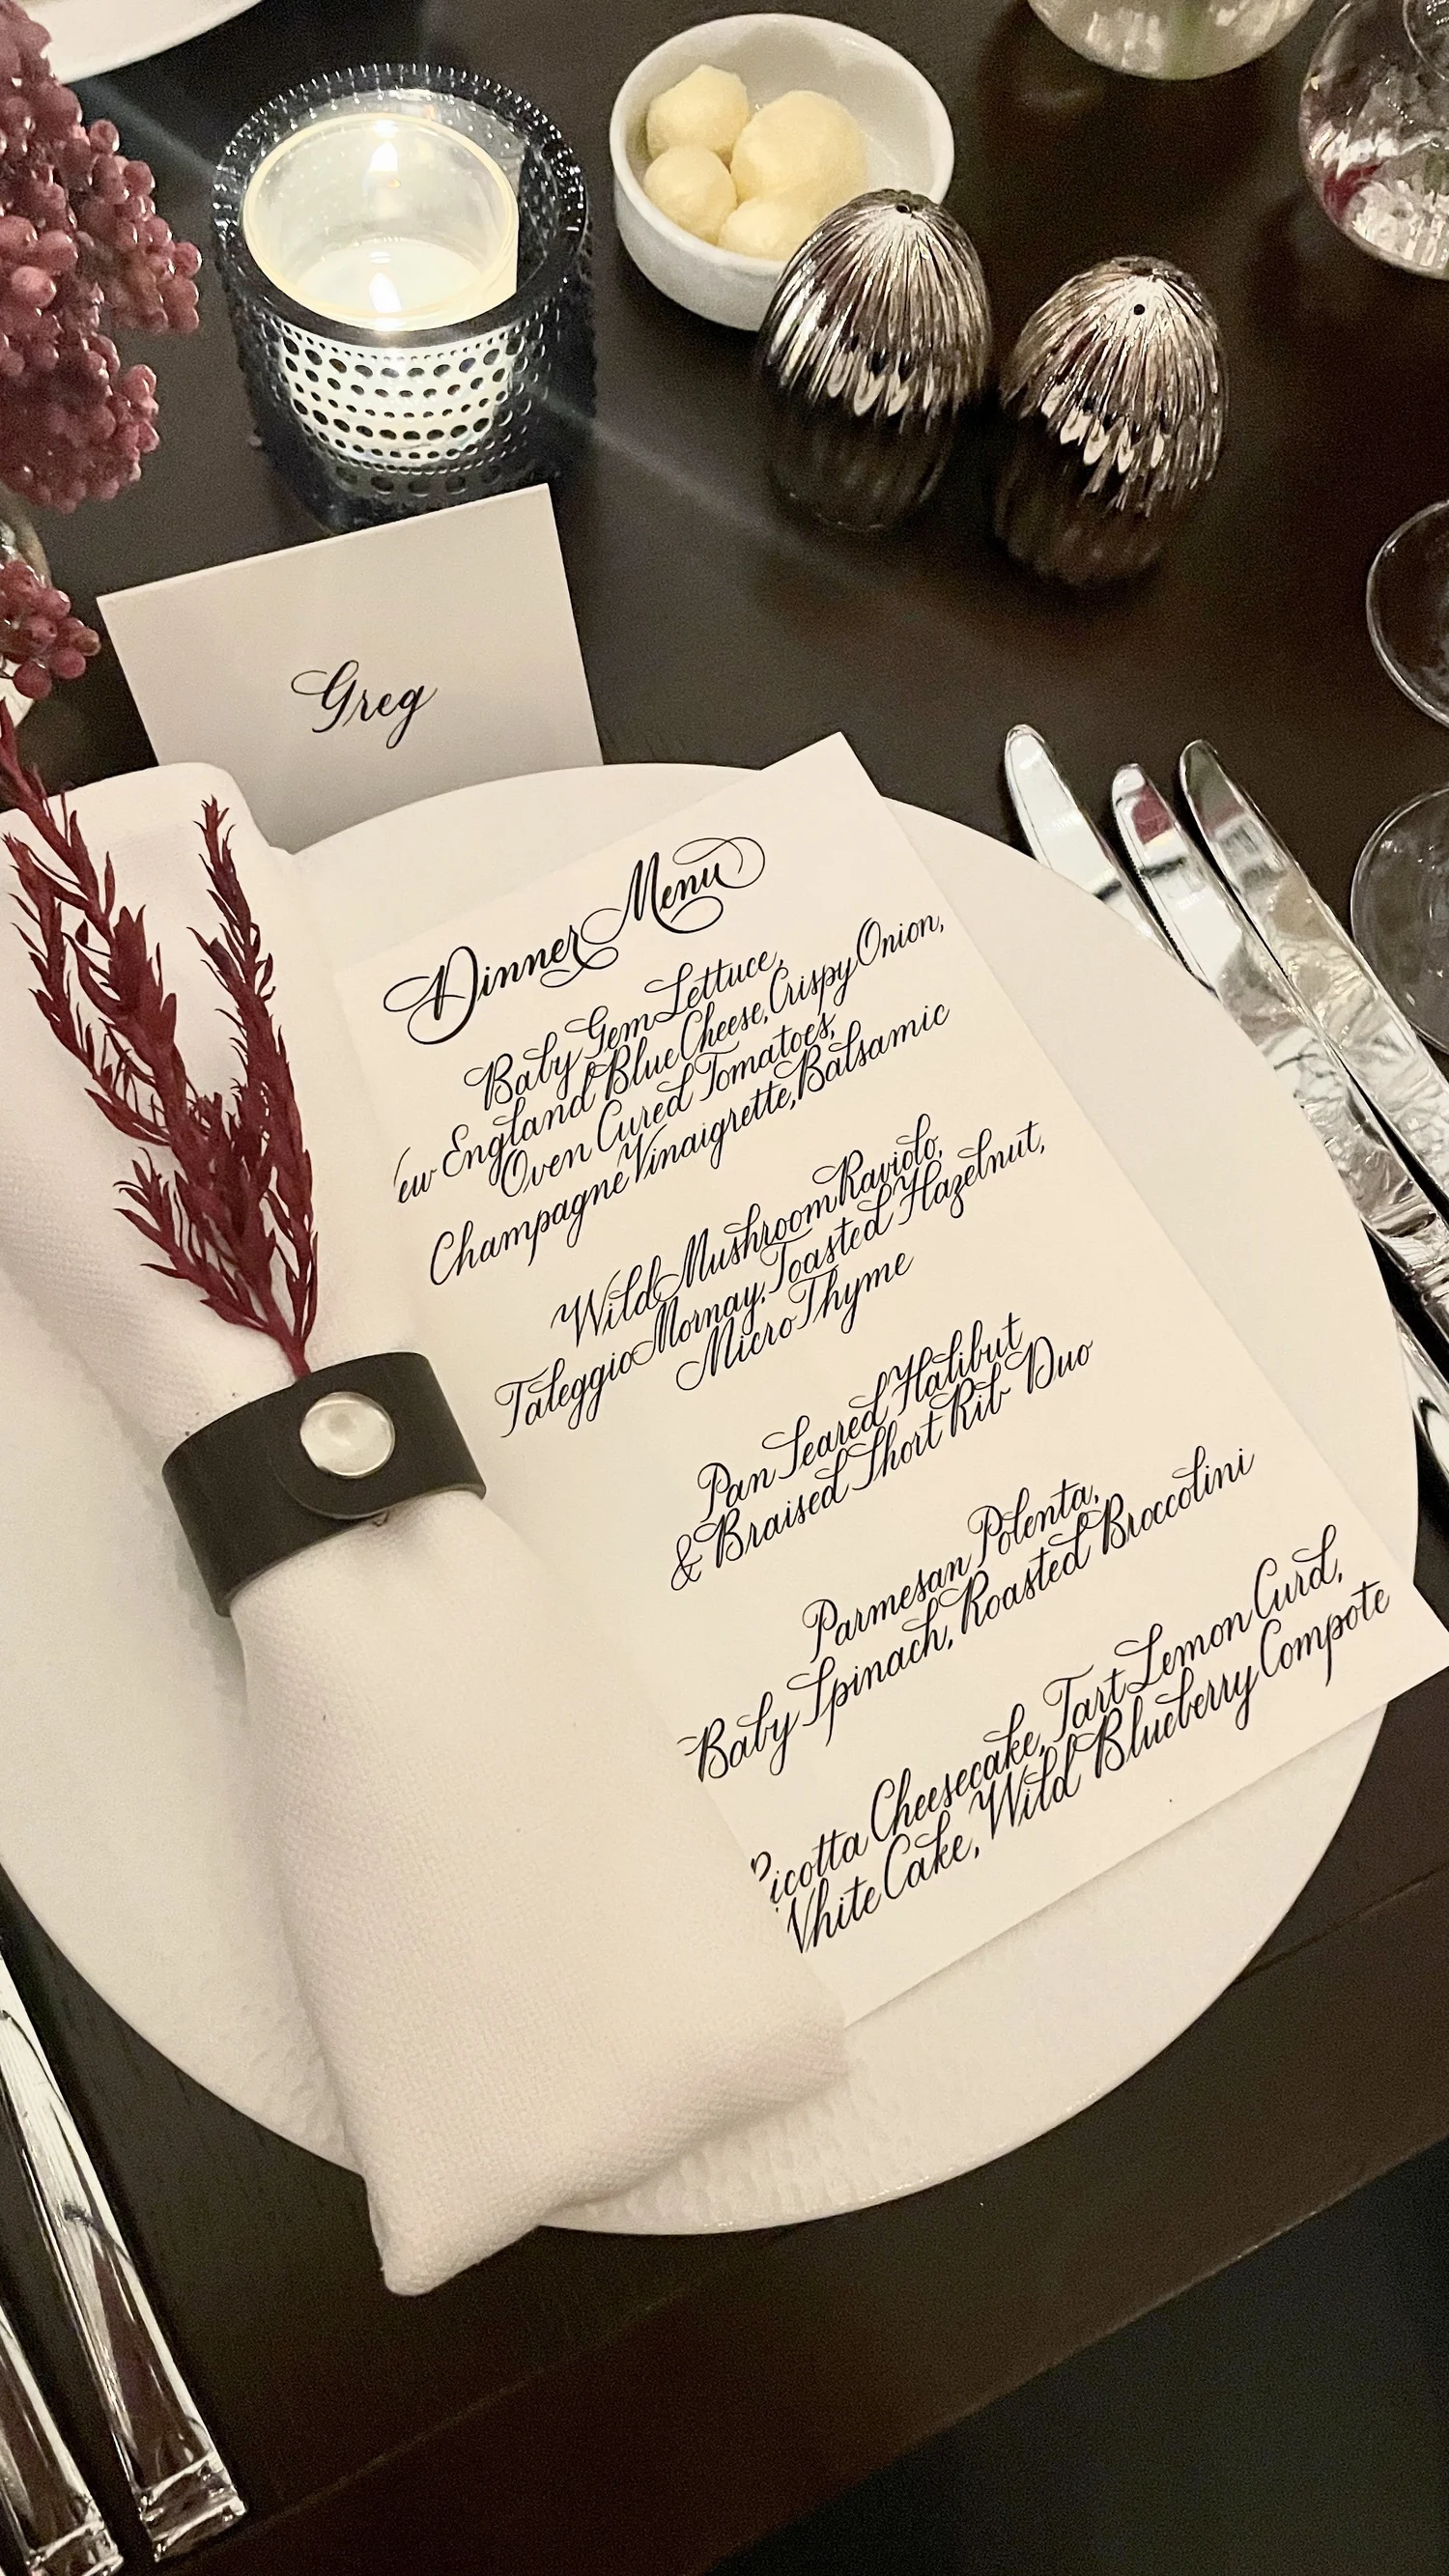 Greg
Dinner Menu
Baby Gem Lettuce,
ew England Blue Cheese, Crispy Onion,
Oven Cured Tomatoes,
Champagne Vinaigrette, Balsamic
Wild Mushroom Raviolo,
Taleggio Mornay, Toasted Hazelnut,
Micro Thyme
Pan Seared Halibut
& Braised Short Rib Duo
Parmesan Polenta,
Baby Spinach, Roasted Broccolini
Ricotta Cheesecake, Tart Lemon Curd,
White Cake, Wild Blueberry Compote